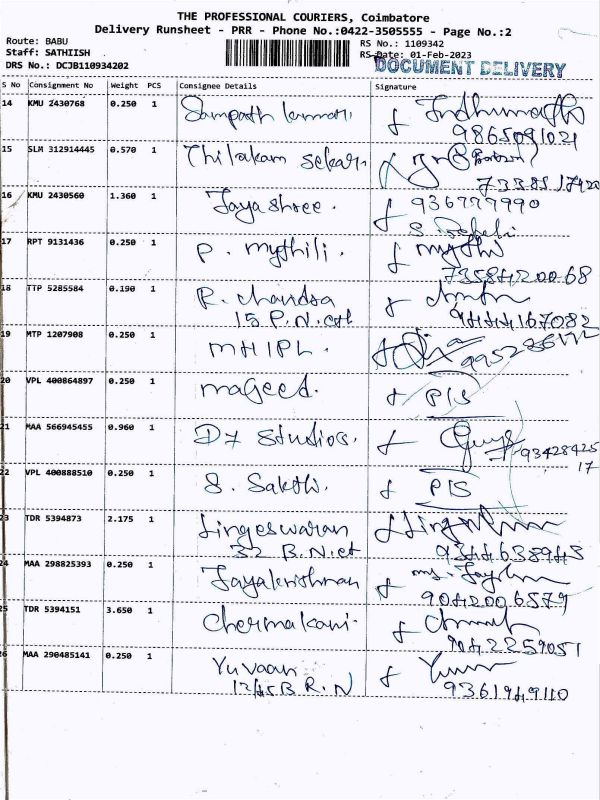 THE PROFESSIONAL COURIERS, Coimbatore
Delivery Runsheet - PRR - Phone No.:0422-3505555 - Page No.:2
Route: BABU
Staff: SATHIISH
DRS No.: DCJB110934202
RS No.: 1109342
RS Date: 01-Feb-2023
DOCUMENT DELIVERY
S No Consignment No Weight PCS Consignee Details Signature
14 KMU 2430768 0.250 1 Sampath kumar.
9865091021
15 SLM 312914445 0.570 1 Thilakam sekar.
16 KMU 2430560 1.360 1 Jayashree. 936777990
17 RPT 9131436 0.250 1 P. mythili.
7358420068
18 TTP 5285584 0.190 1 R. chandra
15 P.N. 9444167082
19 MTP 1207908 0.250 1 MHIPL.
20 VPL 400864897 0.250 1 mageed. P/S
21 MAA 566945455 0.960 1 D7 Studios. 93428425
17
22 VPL 400888510 0.250 1 S. Sakthi. P/S
23 TDR 5394873 2.175 1 Lingeswaran
32 B.N. 9344638948
24 MAA 298825393 0.250 1 Jayakrishnan
9042006579
25 TDR 5394151 3.650 1 Chermakani.
9042259051
26 MAA 290485141 0.250 1 Yuvaan
B.R.N 9361949110